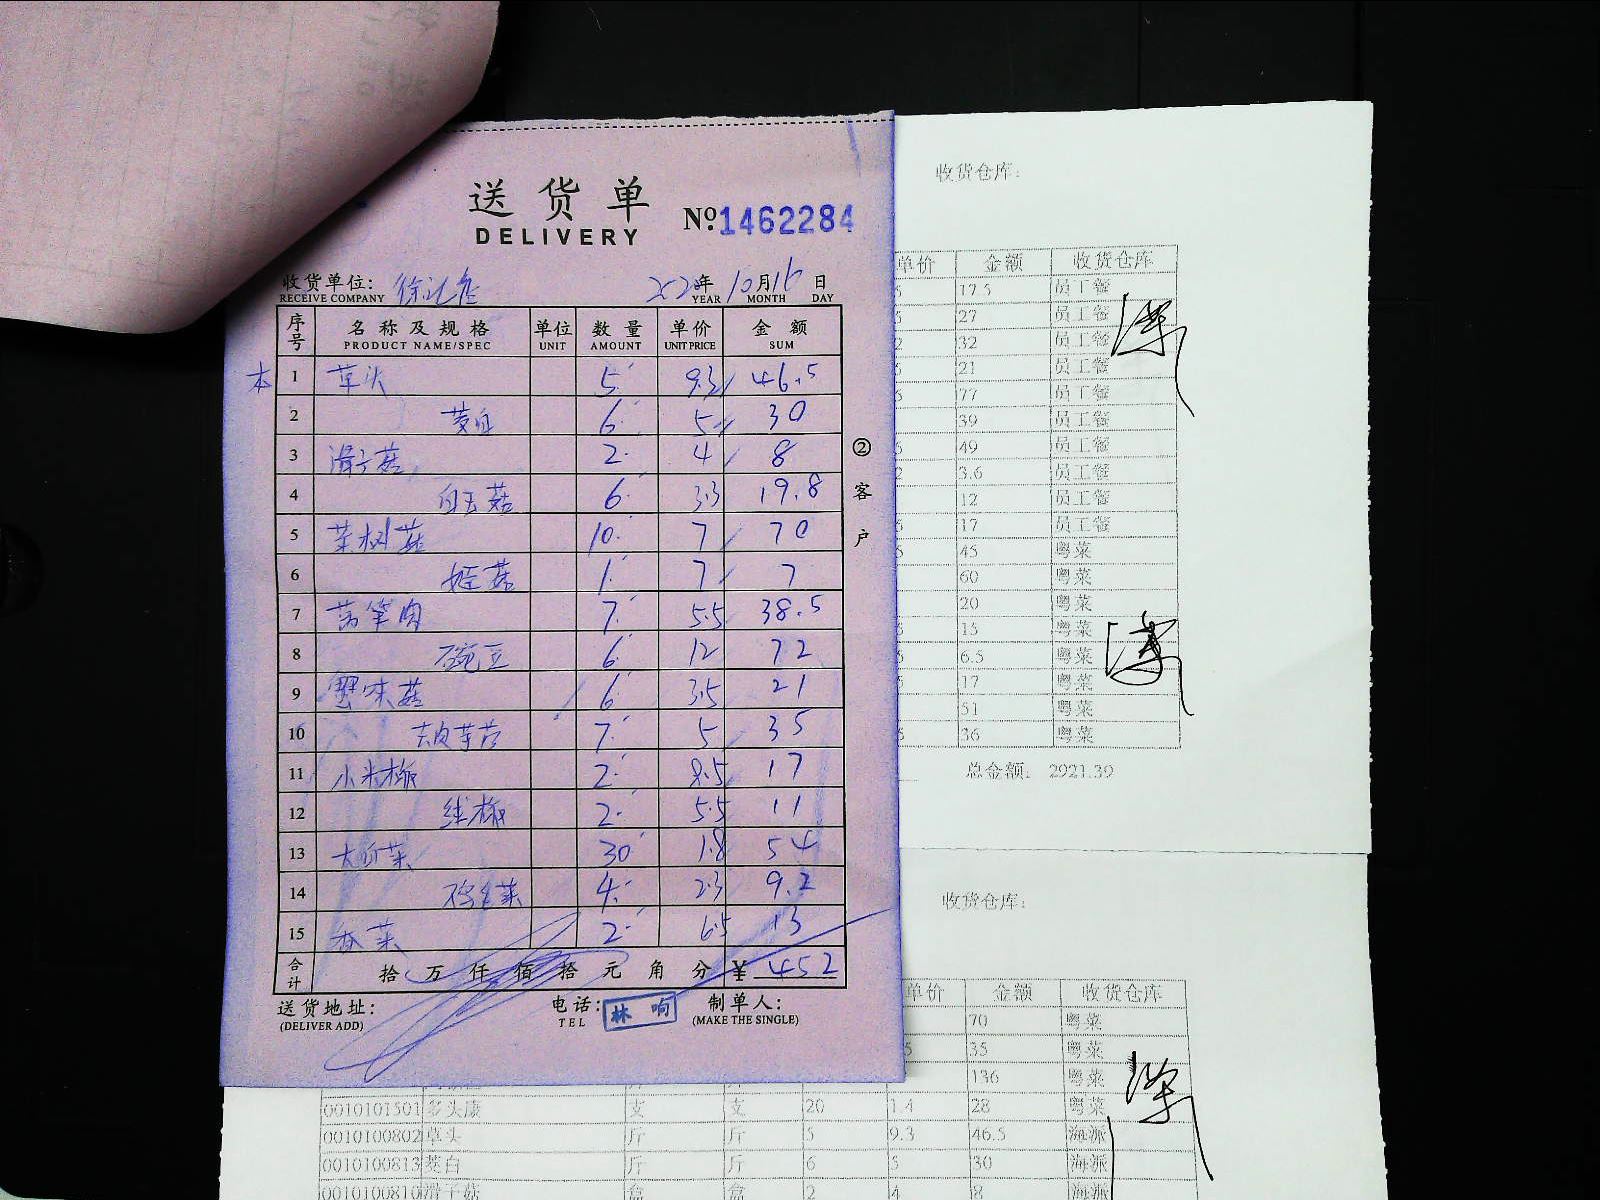 送货单
DELIVERY
№1462284
收货单位:
RECEIVE COMPANY
年 10月16日
YEAR MONTH DAY
序号 名称及规格 单位 数量 单价 金额
PRODUCT NAME/SPEC UNIT AMOUNT UNIT PRICE SUM
本 1 草头 5 9.3 46.5
2 茭白 6 5 30
3 滑子菇 2 4 8
4 白玉菇 6 3.3 19.8
5 茶树菇 10 7 70
6 姬菇 1 7 7
7 莴笋肉 7 5.5 38.5
8 豌豆 6 12 72
9 蟹味菇 6 3.5 21
10 去皮芋艿 7 5 35
11 小米椒 2 8.5 17
12 线椒 2 5.5 11
13 大白菜 30 1.8 54
14 4 2.3 9.2
15 香菜 2 6.5 13
合计 拾 万 仟 佰 拾 元 角 分 ¥ 452
送货地址:
(DELIVER ADD)
电话:
TEL
林响
制单人:
(MAKE THE SINGLE)
②客户
收货仓库:
单价 金额 收货仓库
17.5 员工餐
27 员工餐
32 员工餐
21 员工餐
77 员工餐
39 员工餐
49 员工餐
3.6 员工餐
12 员工餐
17 员工餐
45 粤菜
60 粤菜
20 粤菜
15 粤菜
6.5 粤菜
17 粤菜
51 粤菜
36 粤菜
总金额: 2921.39
收货仓库:
单价 金额 收货仓库
70 粤菜
35 粤菜
136 粤菜
0010101501 多头康 支 支 20 1.4 28 粤菜
0010100802 草头 斤 斤 5 9.3 46.5 海派
0010100813 茭白 斤 斤 6 5 30 海派
0010100810 滑子菇 盒 盒 2 4 8 海派